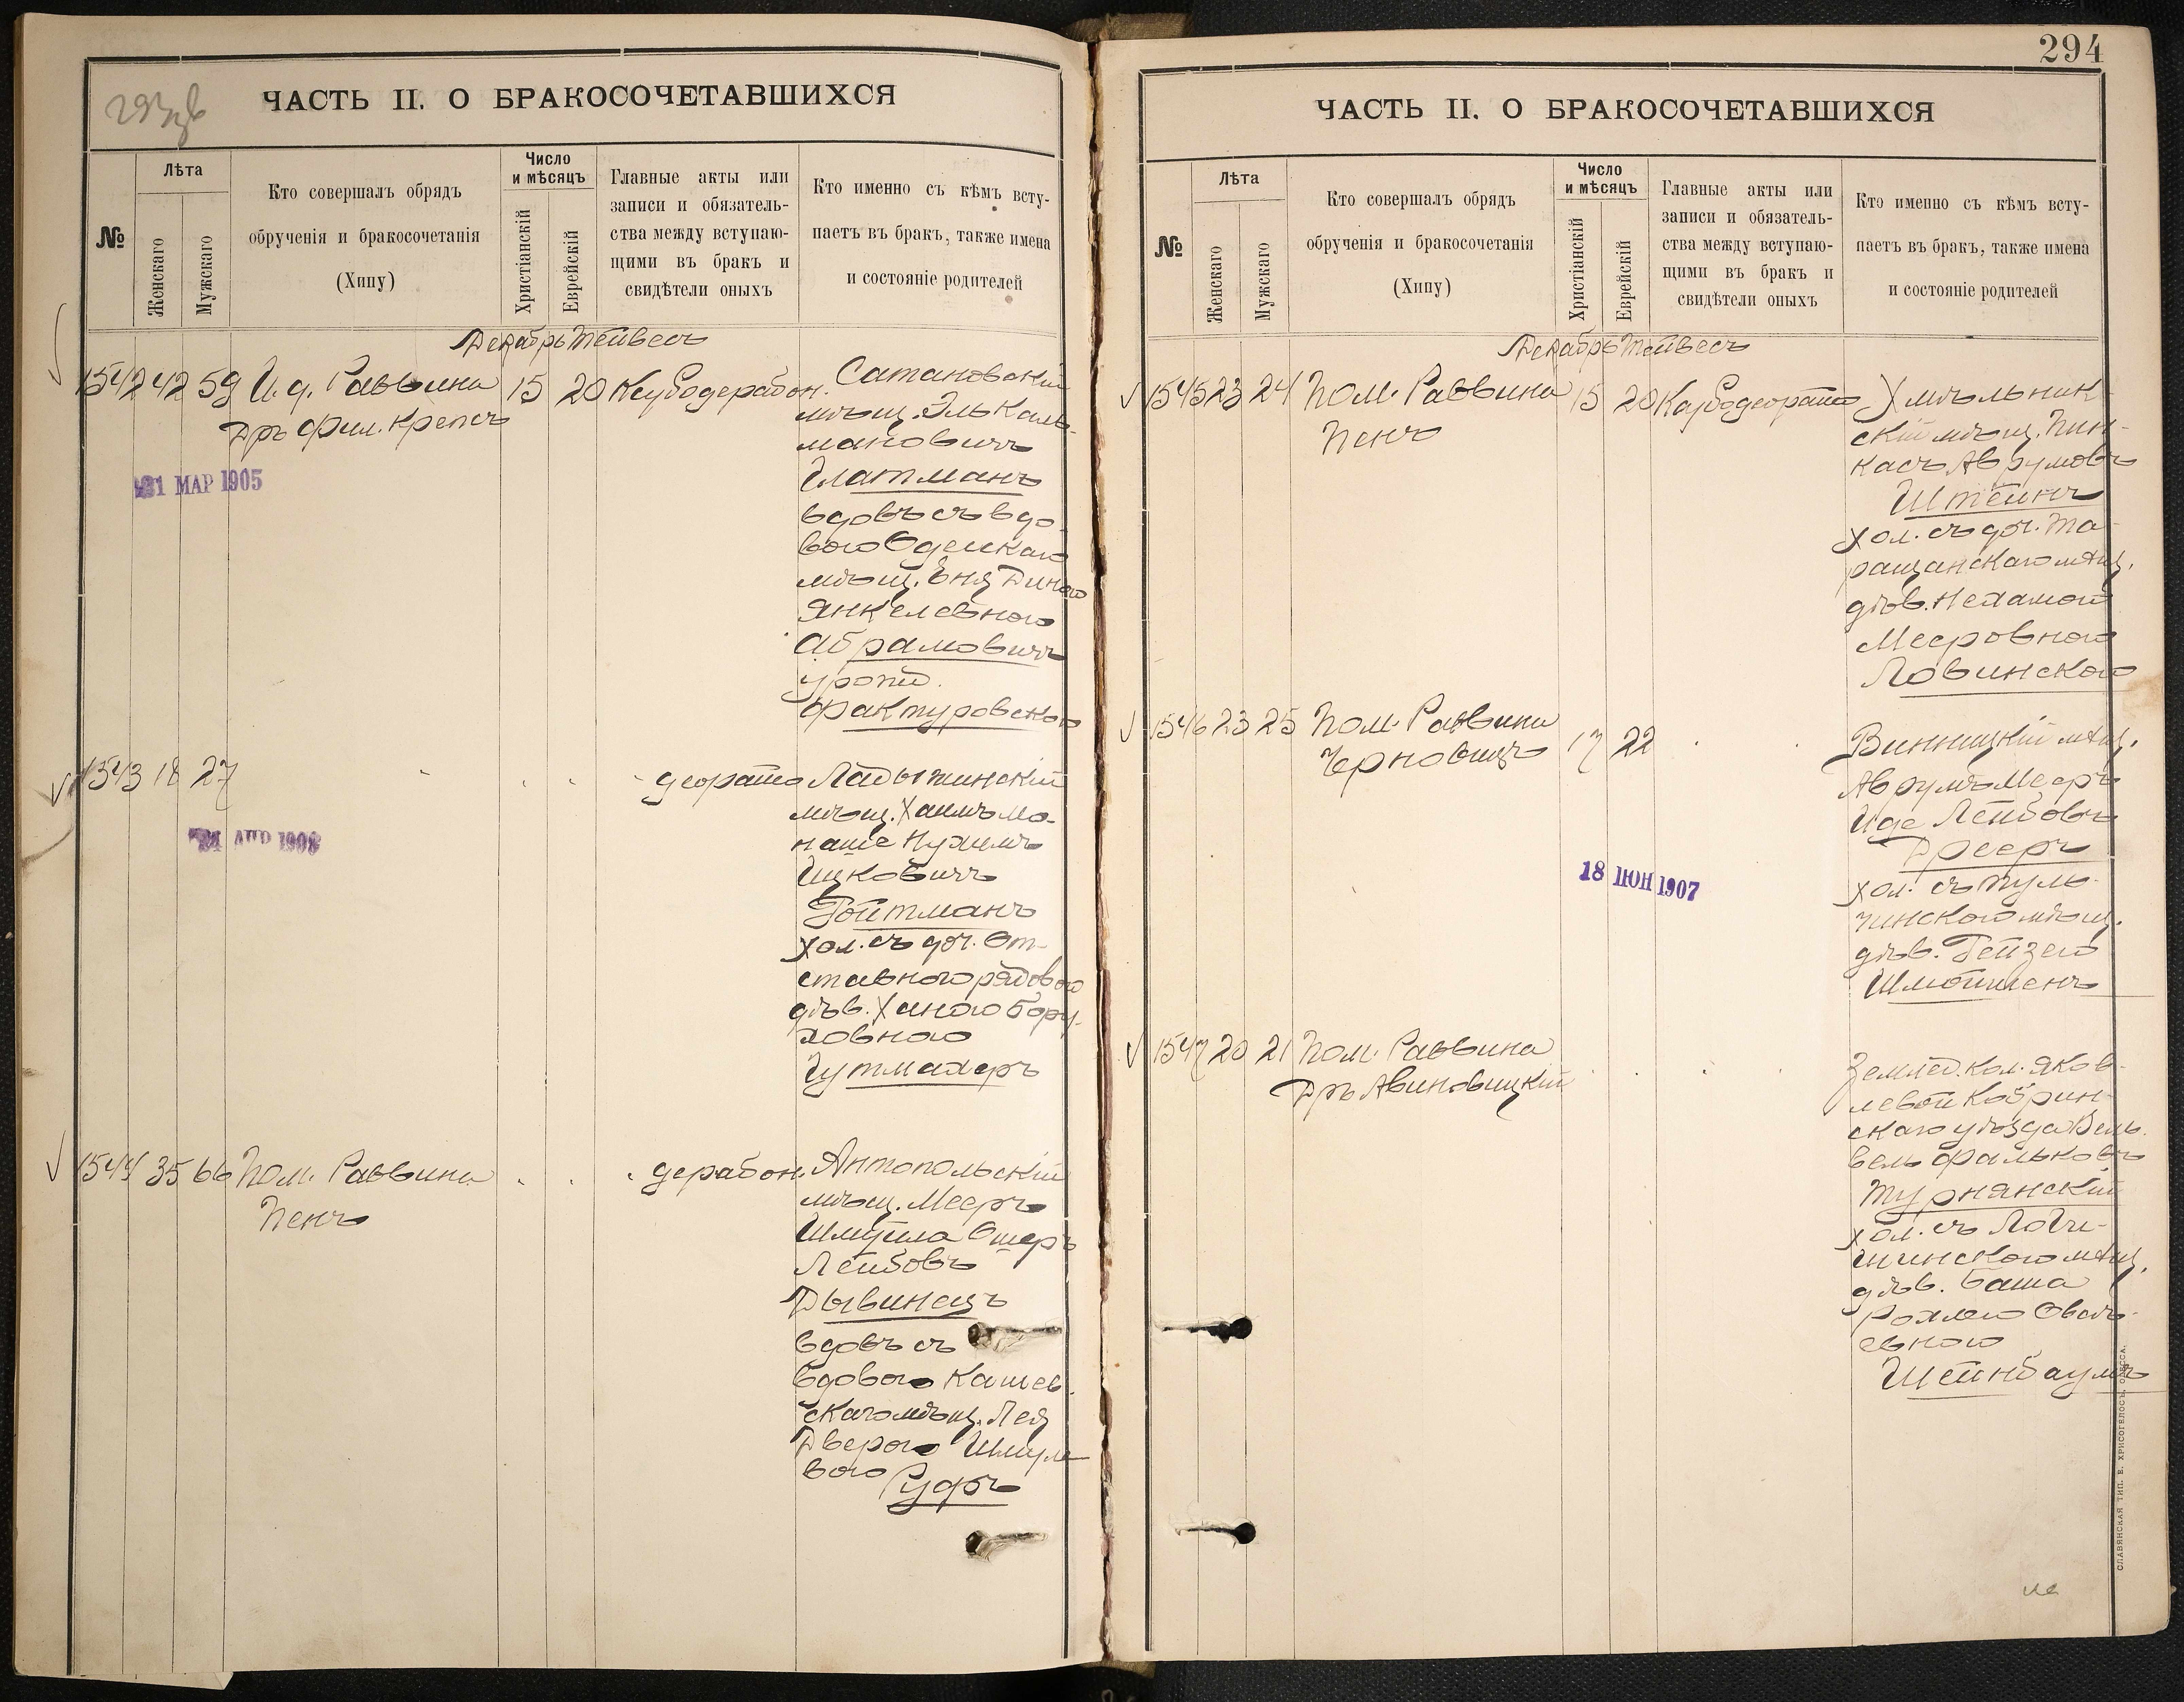 293 об
ЧАСТЬ II. О БРАКОСОЧЕТАВШИХСЯ
№
Лѣта
Женскаго
Мужскаго
Кто совершалъ обрядъ
обрученія и бракосочетанія
(Хипу)
Число
и мѣсяцъ
Христіанскій
Еврейскій
Главные акты или
записи и обязатель-
ства между вступаю-
щими въ бракъ и
свидѣтели оныхъ
Кто именно съ кѣмъ всту-
паетъ въ бракъ, также имена
и состояніе родителей
Декабрь Тейвесъ
1542 42 59 И. д. Раввина 15 20 Кусодерабон.
Дръ Фил. Крепсъ
21 МАР 1905
Сатановскій
мѣщ. Эль Каль-
мановичъ
Глатманъ
вдовъ съ вдо-
вою Одесскаго
мѣщ. Еня Диною
Янкелевною
Абрамовичъ
урожд.
Фактуровскою
1543 18 27 деорайто
24 АПР 1908
Ладыжинскій
мѣщ. Хаимъ Мо-
наше Нухимъ
Ицковичъ
Гойтманъ
хол. съ доч. от-
ставного рядового
дѣв. Ханою Бору-
ховною
Гутмахеръ
1544 35 66 Пом. Раввина дерабон.
Пенъ
Антопольскій
мѣщ. Мееръ
Шмуила Ошеръ
Лейбовъ
Дывинецъ
вдовъ съ
вдовою Кашев-
скаго мѣщ. Лея
Дверою Шмуле-
вою
Рудъ
294
ЧАСТЬ II. О БРАКОСОЧЕТАВШИХСЯ
№
Лѣта
Женскаго
Мужскаго
Кто совершалъ обрядъ
обрученія и бракосочетанія
(Хипу)
Число
и мѣсяцъ
Христіанскій
Еврейскій
Главные акты или
записи и обязатель-
ства между вступаю-
щими въ бракъ и
свидѣтели оныхъ
Кто именно съ кѣмъ всту-
паетъ въ бракъ, также имена
и состояніе родителей
Декабрь Тейвесъ
1545 23 24 Пом. Раввина 15 20 Кусодеорайто
Пенъ
Хмѣльник-
скій мѣщ. Пин-
касъ Аврумовъ
Штейнъ
хол. съ доч. Та-
ращанскаго мѣщ.
дѣв. Нехамой
Мееровною
Ловинского
1546 23 25 Пом. Раввина 17 22
Черновицъ
18 ІЮН 1907
Винницкій мѣщ.
Аврумъ Мееръ
Иде Лейбовъ
Дрееръ
хол. съ Туль-
чинского мѣщ.
дѣв. Гейзею
Шмойшенъ
1547 20 21 Пом. Раввина
Дръ Авиновицкій
Землед. кол. Яков-
левой Кобрин-
скаго уѣзда Вель-
вель Фальковъ
Турнянскій
хол. съ Логи-
шинского мѣщ.
дѣв. Баша
Рохлею Овсѣ-
евною
Штейнбаумъ
СЛАВЯНСКАЯ ТИП. Е. ХРИСОГЕЛОСЪ, ОДЕССА.